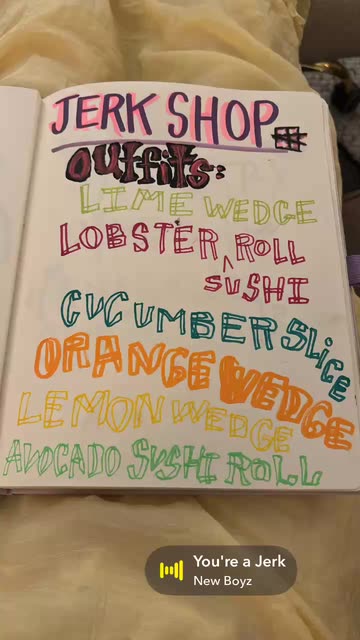 JERK SHOP
OUTfiTS:
LIME WEDGE
LOBSTER ROLL
^ SUSHI
CUCUMBER SLiCE
ORANGE WEDGE
LEMON WEDGE
AVOCADO SUSHI ROLL
You're a Jerk
New Boyz